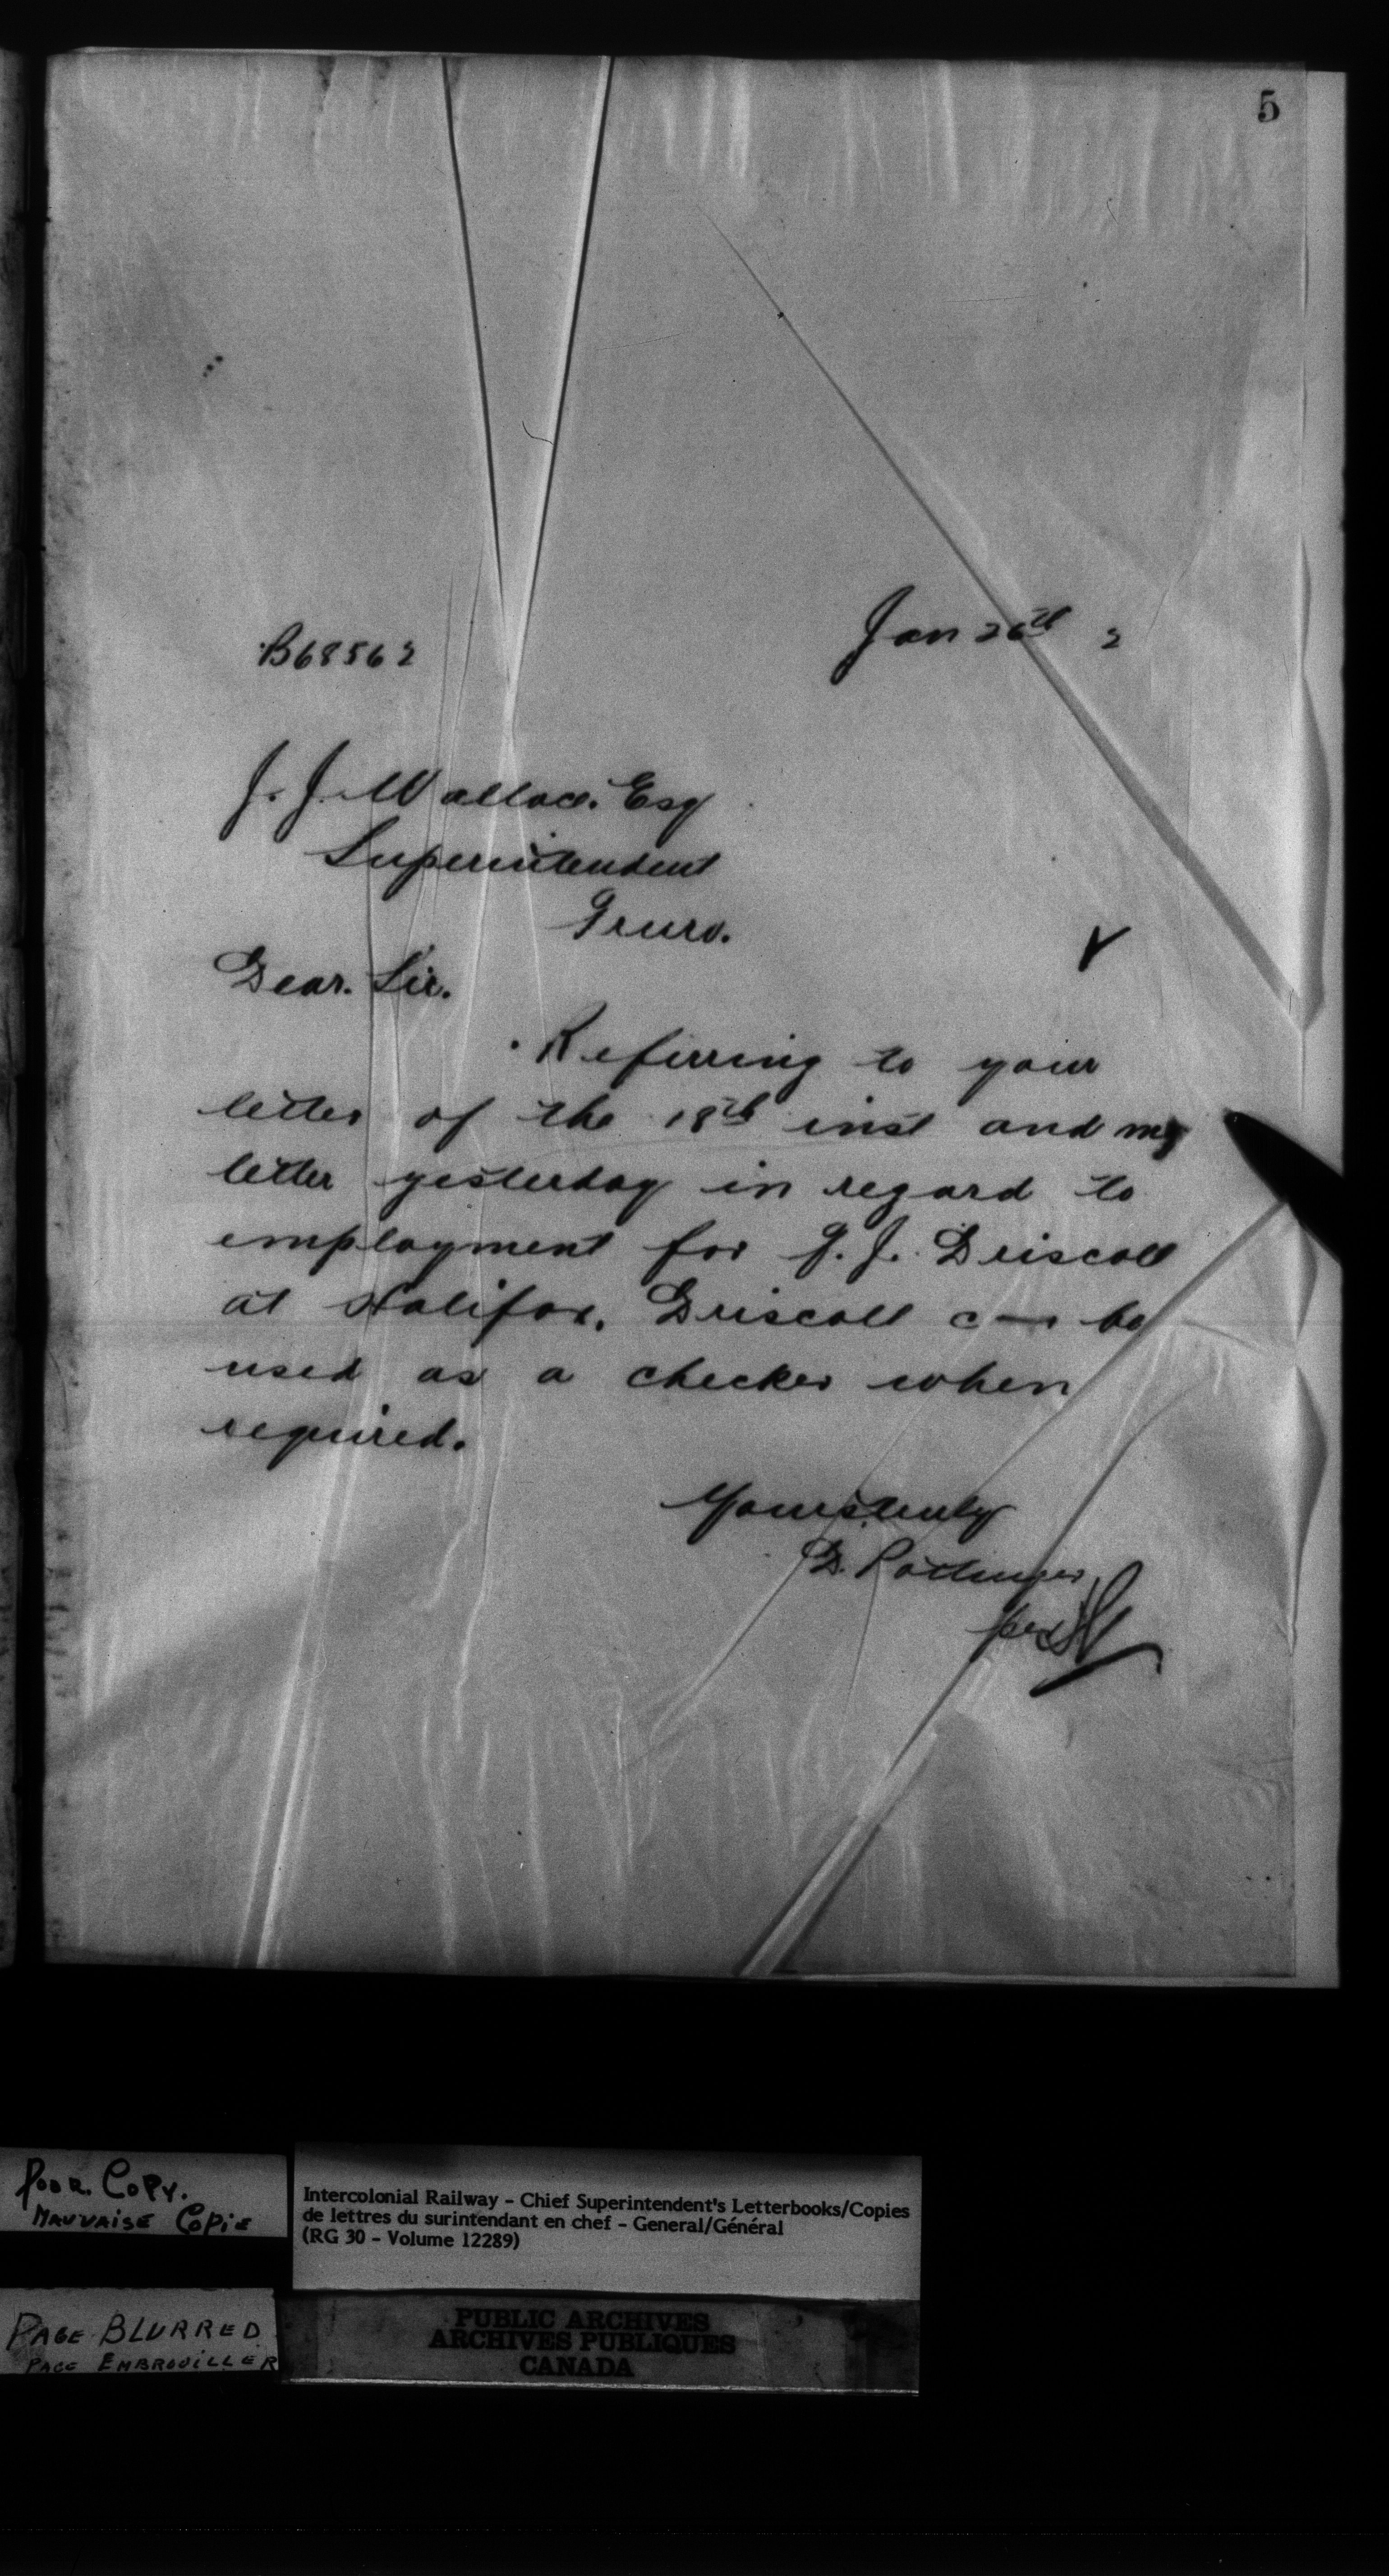 5
B68562
Jan 26th 2
J. J. Wallace. Esq
Superintendent
Truro.
Dear. Sir.
Referring to your
letter of the 18th inst and my
letter yesterday in regard to
employment for J. J. Driscoll
at Halifax. Driscoll can be
used as a checker when
required.
Yours truly
D. Pottinger
per
POOR. COPY.
MAUVAISE COPIE
Intercolonial Railway – Chief Superintendent's Letterbooks/Copies
de lettres du surintendant en chef – General/Général
(RG 30 – Volume 12289)
PAGE BLURRED
PAGE EMBROUILLER
PUBLIC ARCHIVES
ARCHIVES PUBLIQUES
CANADA